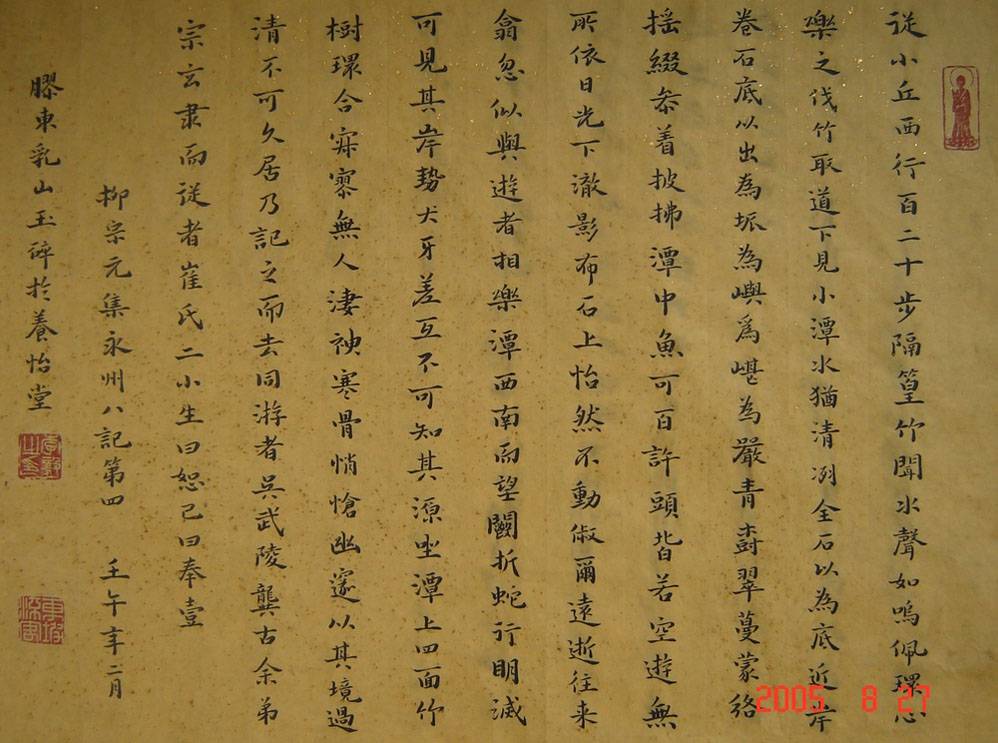 從小丘西行百二十步隔篁竹聞水聲如鳴佩環心
樂之伐竹取道下見小潭水猶清洌全石以為底近岸
卷石底以出為坻為嶼爲嵁為嚴青樹翠蔓蒙絡
搖綴叅着披拂潭中魚可百許頭皆若空遊無
所依日光下澈影布石上怡然不動俶爾遠逝往来
翕忽似與遊者相樂潭西南而望鬭折蛇行明滅
可見其岸勢犬牙差互不可知其源坐潭上四面竹
樹環合寂寥無人凄神寒骨悄愴幽邃以其境過
清不可久居乃記之而去同游者吳武陵龔古余弟
宗玄隸而従者崔氏二小生曰恕己曰奉壹
柳宗元集永州八記第四 壬午年二月
膠東乳山玉碎於養怡堂
2005 8 27